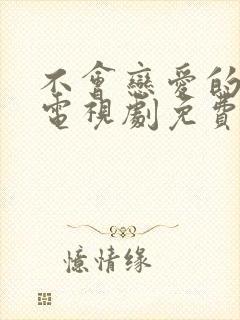 不會戀愛的
電視劇免費
憶情缘